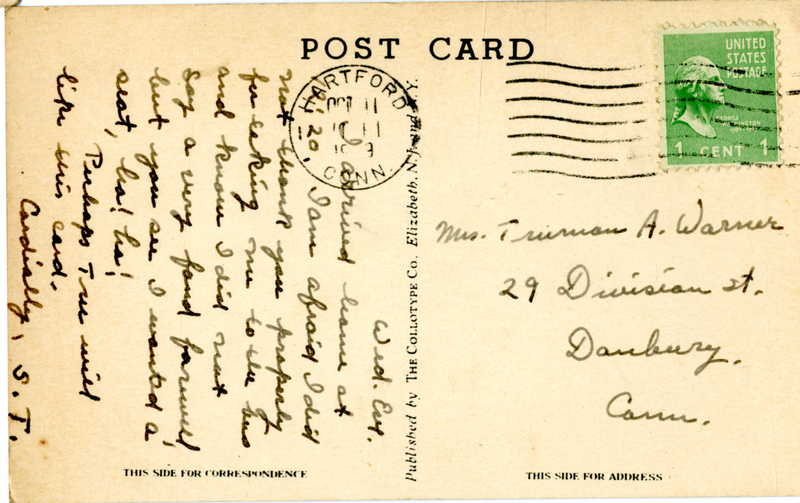 POST CARD
HARTFORD
OCT 11
CONN.
UNITED
STATES
POSTAGE
GEORGE
WASHINGTON
1 CENT 1
Wed. Eve.
I arrived home at
1:20. I am afraid I did
not thank you properly
for asking me to see
and know I did not
say a very fond farwell
but you see I wanted a
seat, ha! ha!
Perhaps Tru will
like this card.
Cordially, S. T.
Published by THE COLLOTYPE Co. Elizabeth, N.J.
Mrs. Truman A. Warner
29 Division St.
Danbury,
Conn.
THIS SIDE FOR CORRESPONDENCE
THIS SIDE FOR ADDRESS